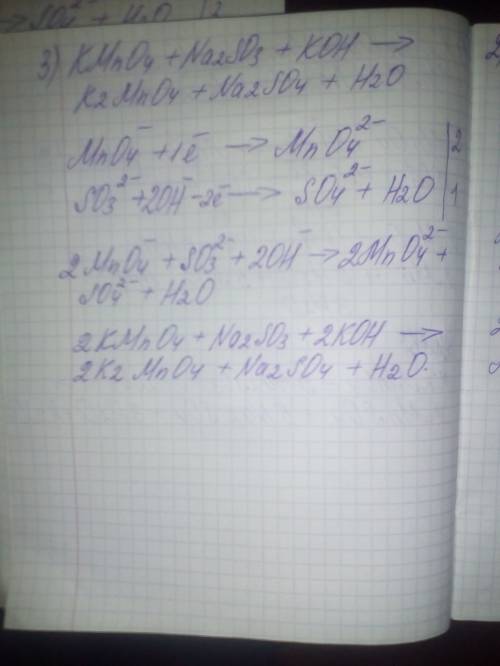 → SO4²⁻ + H2O | 2
3) KMnO4 + Na2SO3 + KOH →
K2MnO4 + Na2SO4 + H2O
MnO4⁻ + 1e⁻ → MnO4²⁻ | 2
SO3²⁻ + 2OH⁻ - 2e⁻ → SO4²⁻ + H2O | 1
2MnO4⁻ + SO3²⁻ + 2OH⁻ → 2MnO4²⁻ +
SO4²⁻ + H2O
2KMnO4 + Na2SO3 + 2KOH →
2K2MnO4 + Na2SO4 + H2O.